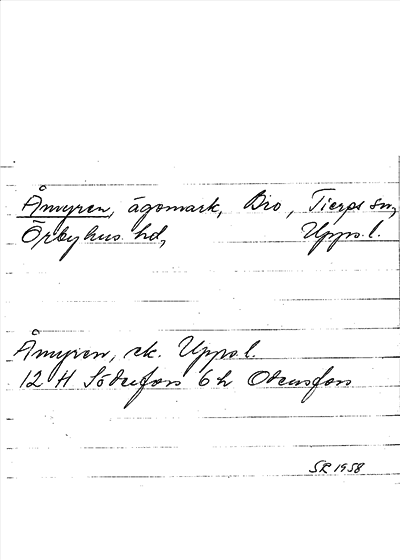 Åmyren, ägomark, Bro, Tierps sn,
Örbyhus hd, Upps.l.
Åmyren, ek. Upps.l.
12 H Söderfors 6 h Odensfors
SR 1958